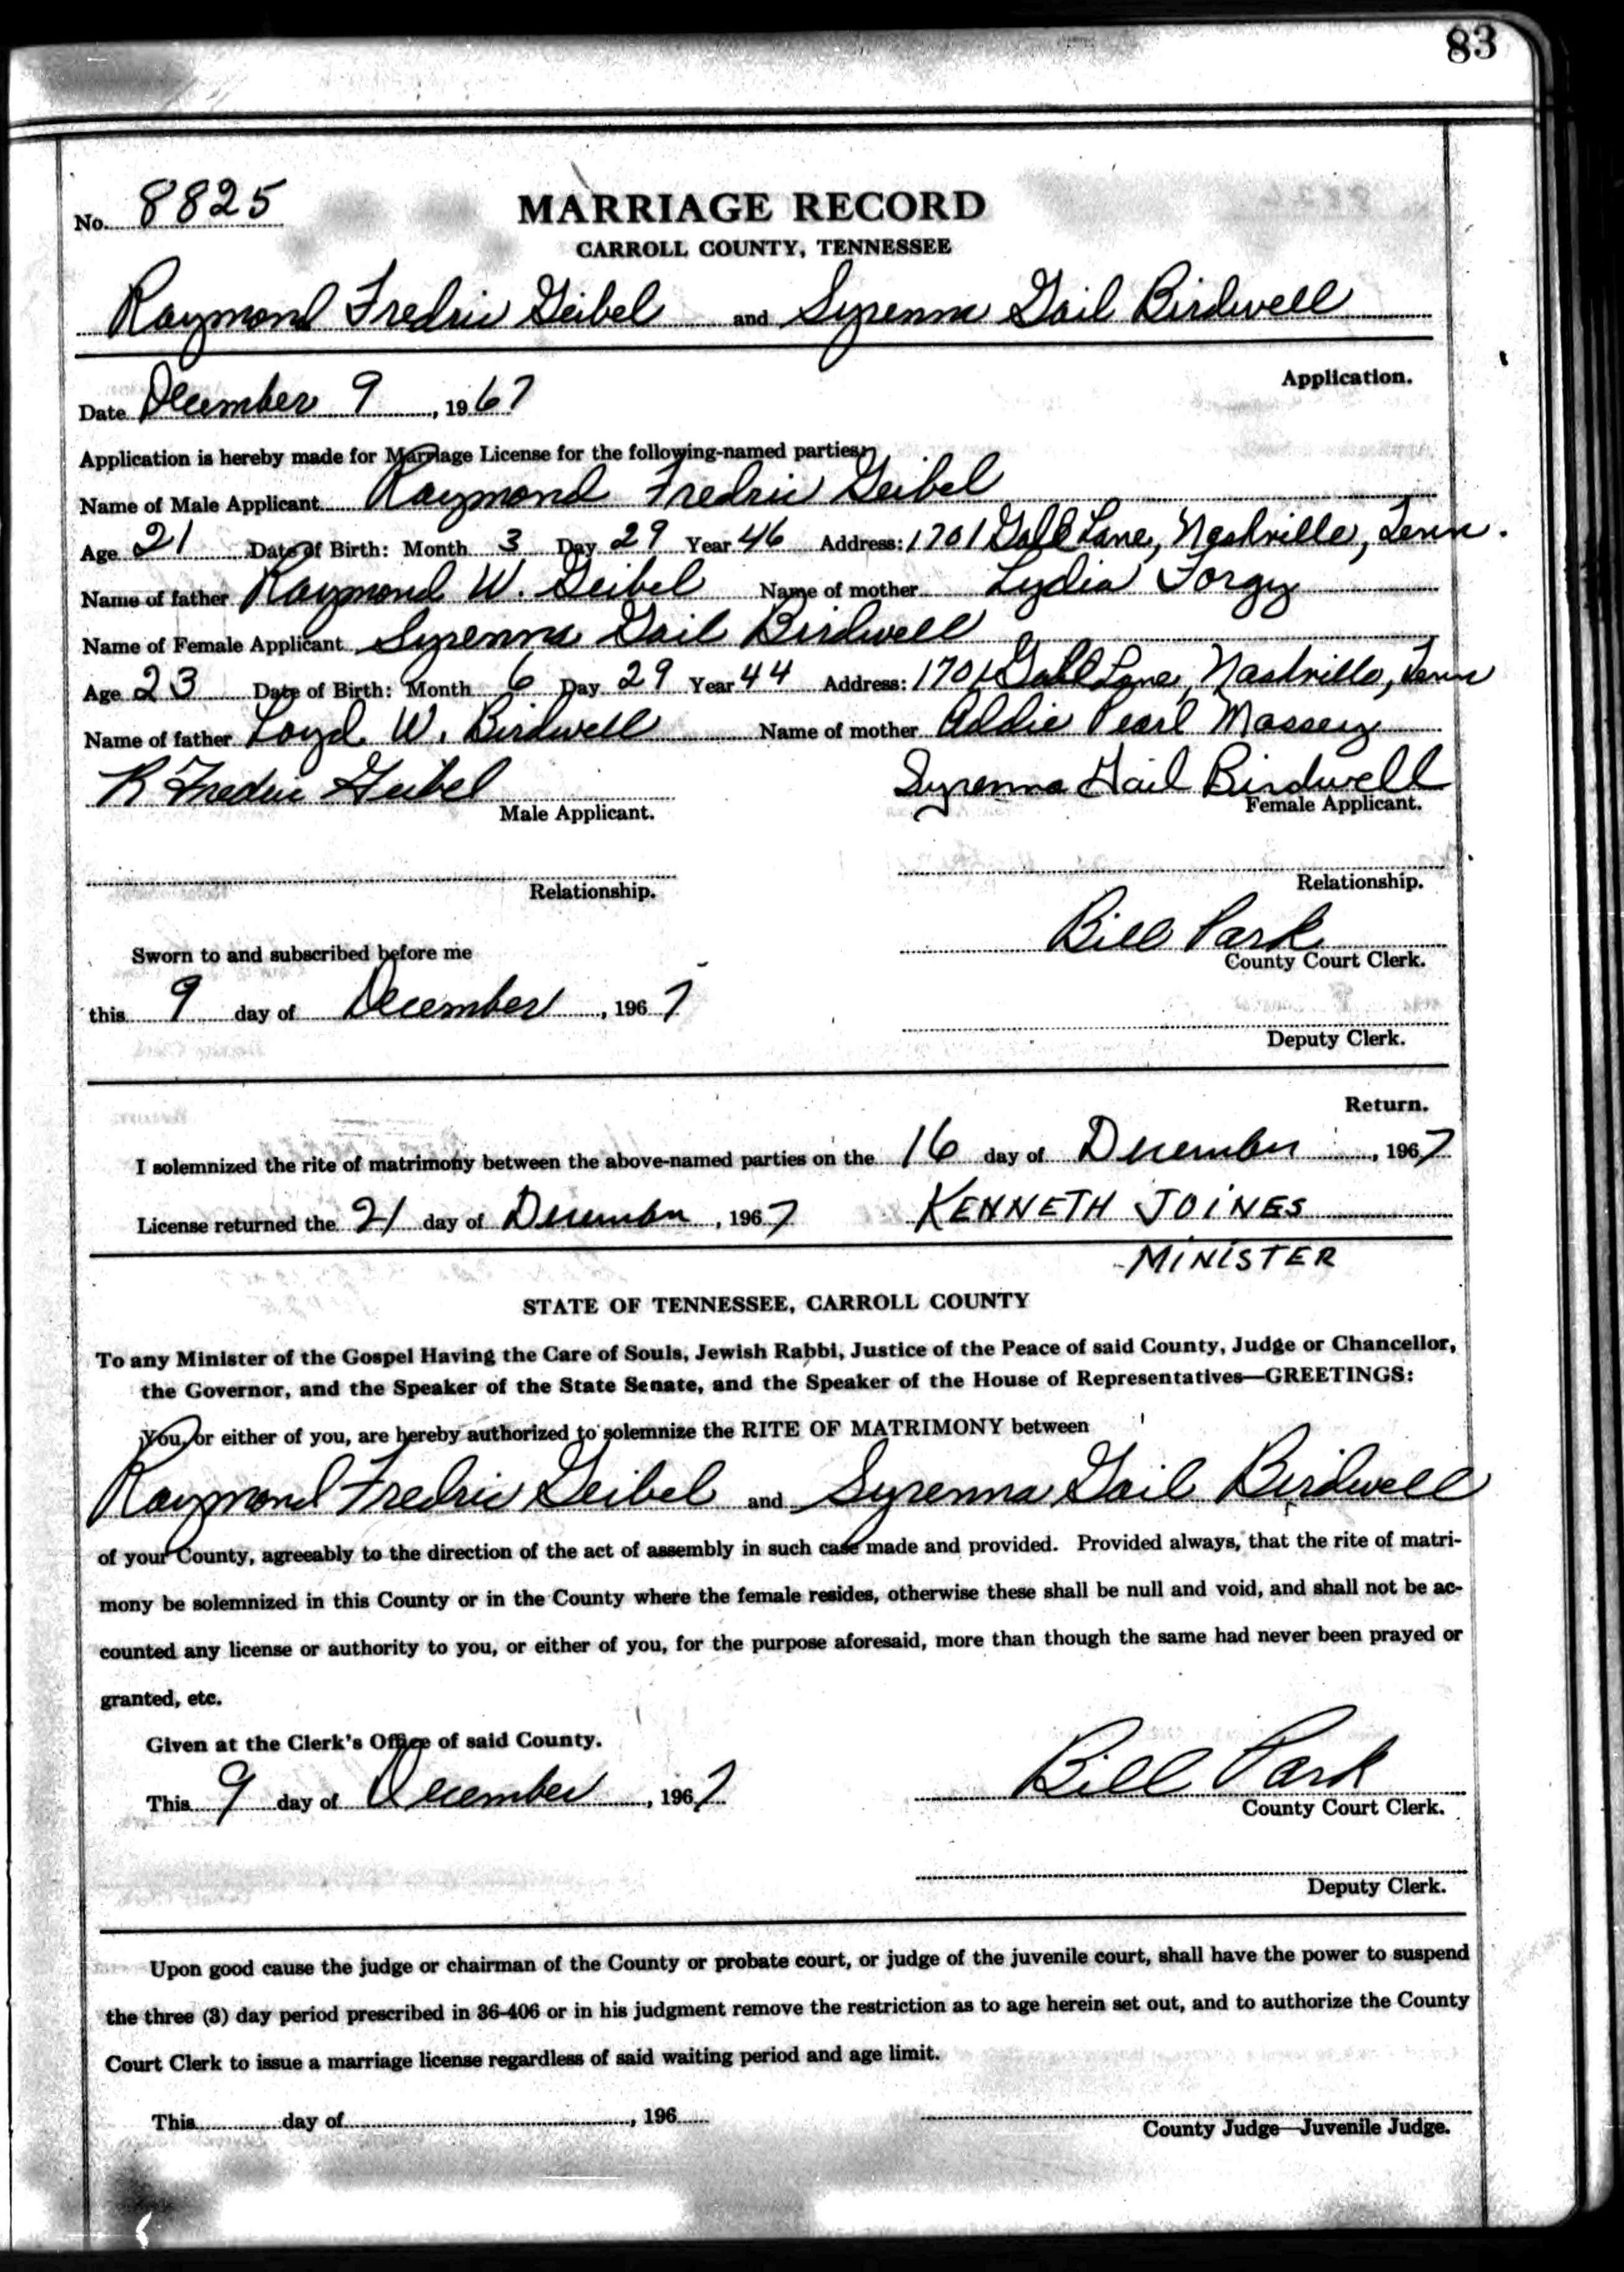 83
No. 8825
MARRIAGE RECORD
CARROLL COUNTY, TENNESSEE
Raymond Fredric Geibel and Syrenna Gail Birdwell
Application.
Date December 9, 1967
Application is hereby made for Marriage License for the following-named parties:
Name of Male Applicant Raymond Fredric Geibel
Age 21 Date of Birth: Month 3 Day 29 Year 46 Address: 1701 Lane, Nashville, Tenn.
Name of father Raymond W. Geibel Name of mother Lydia Forgy
Name of Female Applicant Syrenna Gail Birdwell
Age 23 Date of Birth: Month 6 Day 29 Year 44 Address: 1701 Lane, Nashville, Tenn
Name of father Loyd W. Birdwell Name of mother Addie Pearl Massey
R Fredric Geibel Syrenna Gail Birdwell
Male Applicant. Female Applicant.
Relationship. Relationship.
Bill Park
Sworn to and subscribed before me County Court Clerk.
this 9 day of December, 1967
Deputy Clerk.
Return.
I solemnized the rite of matrimony between the above-named parties on the 16 day of December, 1967
License returned the 21 day of December, 1967 KENNETH JOINES
MINISTER
STATE OF TENNESSEE, CARROLL COUNTY
To any Minister of the Gospel Having the Care of Souls, Jewish Rabbi, Justice of the Peace of said County, Judge or Chancellor,
the Governor, and the Speaker of the State Senate, and the Speaker of the House of Representatives—GREETINGS:
You, or either of you, are hereby authorized to solemnize the RITE OF MATRIMONY between
Raymond Fredric Geibel and Syrenna Gail Birdwell
of your County, agreeably to the direction of the act of assembly in such case made and provided. Provided always, that the rite of matri-
mony be solemnized in this County or in the County where the female resides, otherwise these shall be null and void, and shall not be ac-
counted any license or authority to you, or either of you, for the purpose aforesaid, more than though the same had never been prayed or
granted, etc.
Given at the Clerk's Office of said County.
This 9 day of December, 1967 Bill Park
County Court Clerk.
Deputy Clerk.
Upon good cause the judge or chairman of the County or probate court, or judge of the juvenile court, shall have the power to suspend
the three (3) day period prescribed in 36-406 or in his judgment remove the restriction as to age herein set out, and to authorize the County
Court Clerk to issue a marriage license regardless of said waiting period and age limit.
This day of , 196
County Judge—Juvenile Judge.